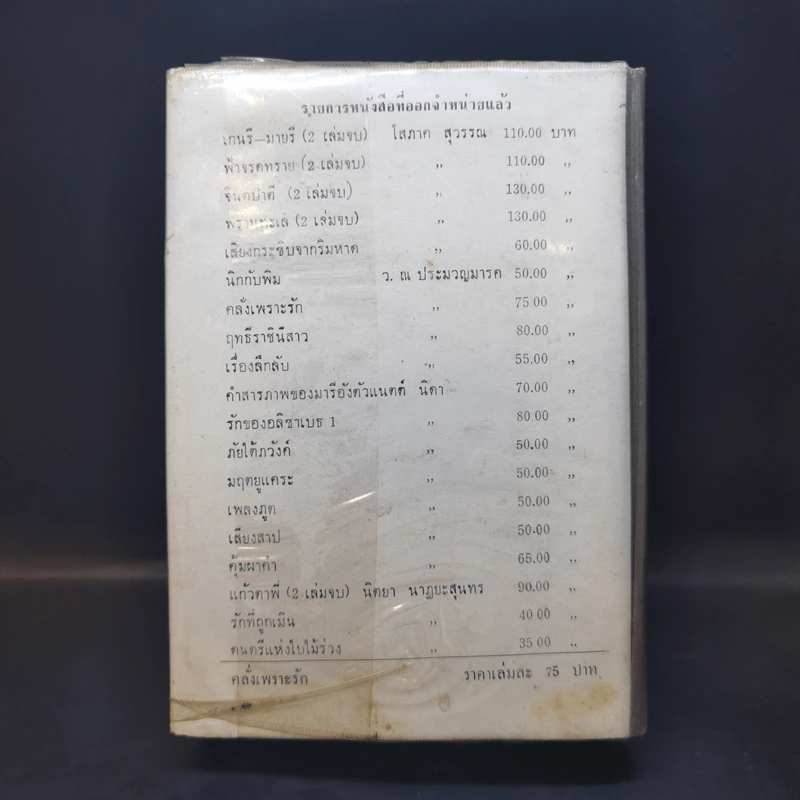 รายการหนังสือที่ออกจำหน่ายแล้ว
เกนรี—มายรี (2 เล่มจบ) โสภาค สุวรรณ 110.00 บาท
ฟ้าจรดทราย (2 เล่มจบ) ,, 110.00 ,,
จินตปาตี (2 เล่มจบ) ,, 130.00 ,,
พรานทะเล (2 เล่มจบ) ,, 130.00 ,,
เสียงกระซิบจากริมหาด ,, 60.00 ,,
นิกกับพิม ว. ณ ประมวญมารค 50.00 ,,
คลั่งเพราะรัก ,, 75 00 ,,
ฤทธีราชินีสาว ,, 80.00 ,,
เรื่องลึกลับ ,, 55.00 ,,
คำสารภาพของมารีอังตัวแนตต์ นิดา 70.00 ,,
รักของอลิซาเบธ 1 ,, 80.00 ,,
ภัยใต้ภวังค์ ,, 50.00 ,,
มฤตยูแคระ ,, 50.00 ,,
เพลงภูต ,, 50.00 ,,
เสียงสาป ,, 50.00 ,,
คุ้มผาคำ ,, 65.00 ,,
แก้วตาพี่ (2 เล่มจบ) นิตยา นาฏยะสุนทร 90.00 ,,
รักที่ถูกเมิน ,, 40 00 ,,
ดนตรีแห่งใบไม้ร่วง ,, 35 00 ,,
คลั่งเพราะรัก ราคาเล่มละ 75 บาท